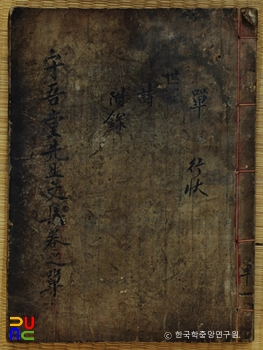 單
行狀
世
詩
附錄
吾堂先生文卷之單
ⓒ 한국학중앙연구원